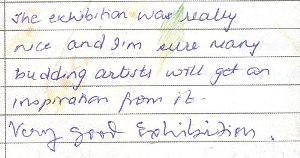 The exhibition was really
nice and I'm sure many
budding artists will get an
inspiration from it.
Very good Exhibition.